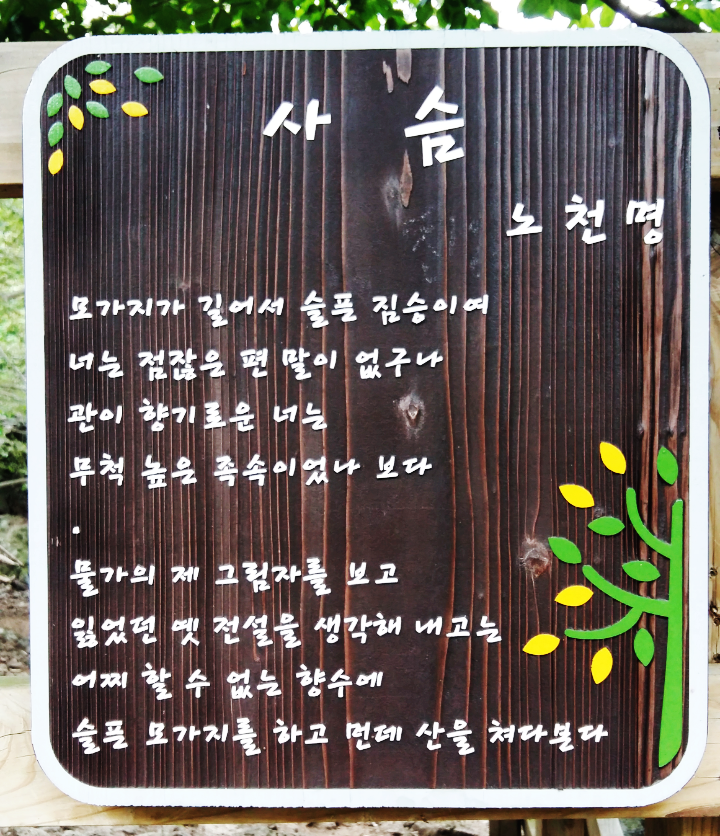 사 슴
노 천 명
모가지가 길어서 슬픈 짐승이여
너는 점잖은 편 말이 없구나
관이 향기로운 너는
무척 높은 족속이었나 보다
.
물가의 제 그림자를 보고
잃었던 옛 전설을 생각해 내고는
어찌 할 수 없는 향수에
슬픈 모가지를 하고 먼데 산을 쳐다본다